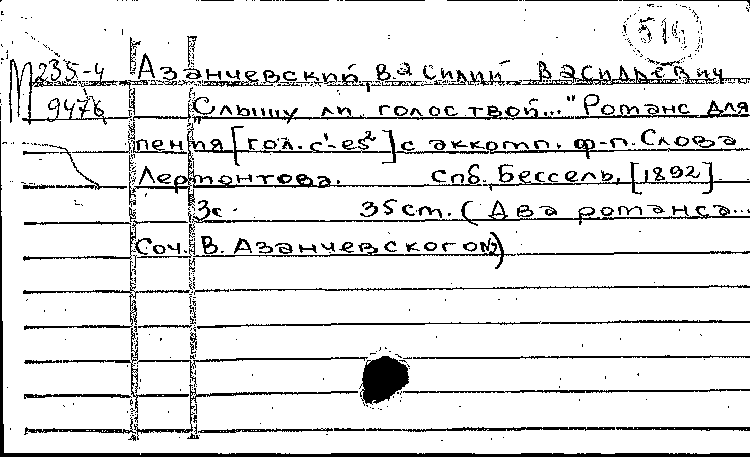 514
М 235-4 Азанчевский, Василий Васильевич
9476 "Слышу ли голос твой..." Романс для
пения [гол. c¹-es²] с аккомп. ф-п. Слова
Лермонтова. Спб, Бессель, [1892]
3с. 35 cm. (Два романса...
Соч. В. Азанчевского №2)